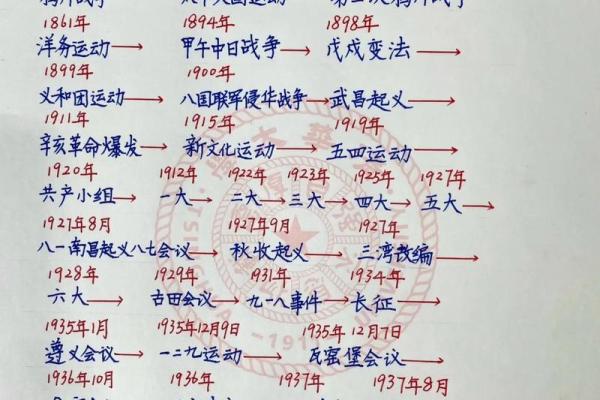 1861年 1894年 1898年
洋务运动→ 甲午中日战争→ 戊戌变法→
1899年 1900年
义和团运动→ 八国联军侵华战争→ 武昌起义→
1911年 1915年 1919年
辛亥革命爆发→ 新文化运动→ 五四运动→
1920年 1912年 1922年 1923年 1925年 1927年
共产小组→ 一大→ 二大→ 三大→ 四大→ 五大→
1927年8月 1927年9月 1927年
八一南昌起义八七会议→ 秋收起义→ 三湾改编→
1928年 1929年 931年 1934年
六大→ 古田会议→ 九一八事件→ 长征→
1935年1月 1935年12月9日 1935年12月7日
遵义会议→ 一二九运动→ 瓦窑堡会议→
1936年10月 1936年 1937年 1937年8月